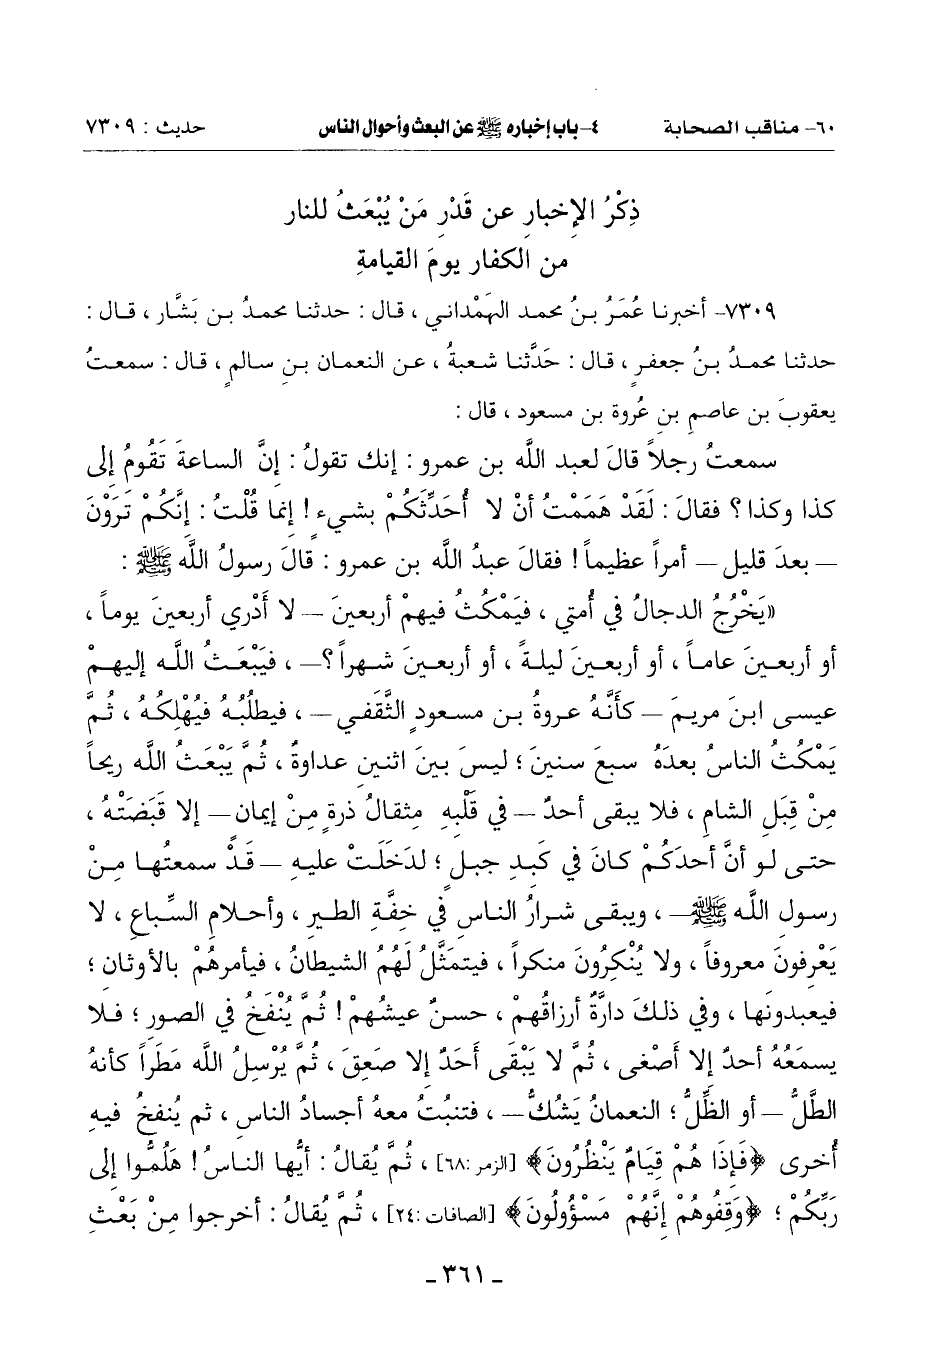 ٦٠- مناقب الصحابة ٤- باب إخباره ﷺ عن البعث وأحوال الناس حديث : ٧٣٠٩
ذِكْرُ الإخبارِ عن قَدْرِ مَنْ يُبْعَثُ للنار
من الكفار يومَ القيامةِ
٧٣٠٩- أخبرنا عُمَرُ بنُ محمد الهَمْداني ، قال : حدثنا محمدُ بن بَشَّار ، قال :
حدثنا محمدُ بنُ جعفرٍ ، قال : حَدَّثنا شعبةُ ، عن النعمان بنِ سالمٍ ، قال : سمعتُ
يعقوبَ بن عاصمِ بنِ عُروة بن مسعود ، قال :
سمعتُ رجلاً قالَ لعبد اللَّه بن عمرو : إنك تقولُ : إنَّ الساعةَ تَقُومُ إلى
كذا وكذا ؟ فقالَ : لَقَدْ هَمَمْتُ أنْ لا أُحَدِّثَكُمْ بشيءٍ ! إنما قُلْتُ : إنَّكُمْ تَرَوْنَ
— بعدَ قليل — أمراً عظيماً ! فقالَ عبدُ اللَّه بن عمرو : قالَ رسولُ اللَّه ﷺ :
«يَخْرُجُ الدجالُ في أُمتي ، فيَمْكُثُ فيهمْ أربعينَ — لا أَدْري أربعينَ يوماً ،
أو أربعينَ عاماً ، أو أربعينَ ليلةً ، أو أربعينَ شهراً ؟— ، فيَبْعَثُ اللَّه إليهمْ
عيسى ابنَ مريمَ — كأنَّهُ عروةُ بن مسعودٍ الثَّقَفي — ، فيطلُبُهُ فيُهْلِكُهُ ، ثُمَّ
يَمْكُثُ الناسُ بعدَهُ سبعَ سنينَ ؛ ليسَ بينَ اثنينِ عداوةٌ ، ثُمَّ يَبْعَثُ اللَّه ريحاً
مِنْ قِبَلِ الشامِ ، فلا يبقى أحدٌ — في قَلْبِهِ مِثقالُ ذرةٍ مِنْ إيمان — إلا قَبَضَتْهُ ،
حتى لو أنَّ أحدَكُمْ كانَ في كَبِدِ جبلٍ ؛ لدَخَلَتْ عليهِ — قَدْ سمعتُها مِنْ
رسولِ اللَّه ﷺ — ، ويبقى شرارُ الناس في خِفَّةِ الطيرِ ، وأحلامِ السِّباعِ ، لا
يَعْرِفونَ معروفاً ، ولا يُنْكِرُونَ منكراً ، فيتمَثَّلُ لَهُمُ الشيطانُ ، فيأمرهُمْ بالأوثان ؛
فيعبدونَها ، وفي ذلكَ دارَّةٌ أرزاقُهمْ ، حسنٌ عيشُهمْ ! ثُمَّ يُنْفَخُ في الصورِ ؛ فلا
يسمَعُهُ أحدٌ إلا أَصْغى ، ثُمَّ لا يَبْقَى أَحَدٌ إلا صَعِقَ ، ثُمَّ يُرْسِلُ اللَّه مَطَراً كأنهُ
الطَّلُّ — أو الظِّلُّ ؛ النعمانُ يَشُكُّ — ، فتنبُتُ معهُ أجسادُ الناس ، ثم يُنفخُ فيهِ
أُخرى ﴿فَإِذَا هُمْ قِيَامٌ يَنْظُرُونَ﴾ [الزمر :٦٨] ، ثُمَّ يُقالُ : أيُّها الناسُ ! هَلُمُّوا إلى
رَبِّكُمْ ؛ ﴿وَقِفُوهُمْ إِنَّهُمْ مَسْؤُولُونَ﴾ [الصافات :٢٤] ، ثُمَّ يُقالُ : أخرجوا مِنْ بَعْثِ
- ٣٦١ -